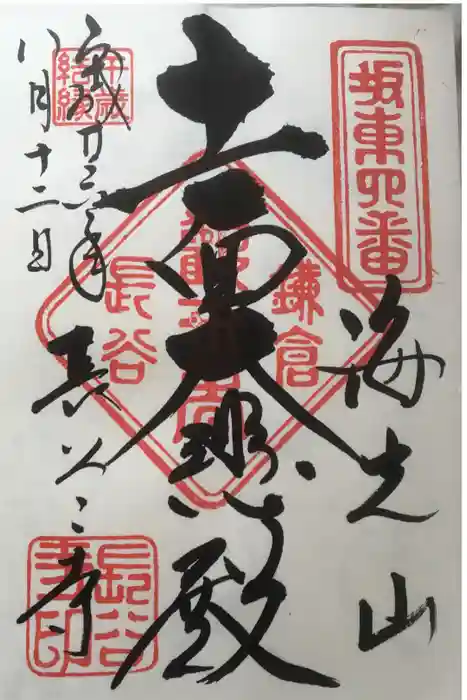 坂東四番
海光山
十一面大悲殿
鎌倉
長谷
午歳結縁
平成廿六年
八月十二日
長谷寺
長谷寺印